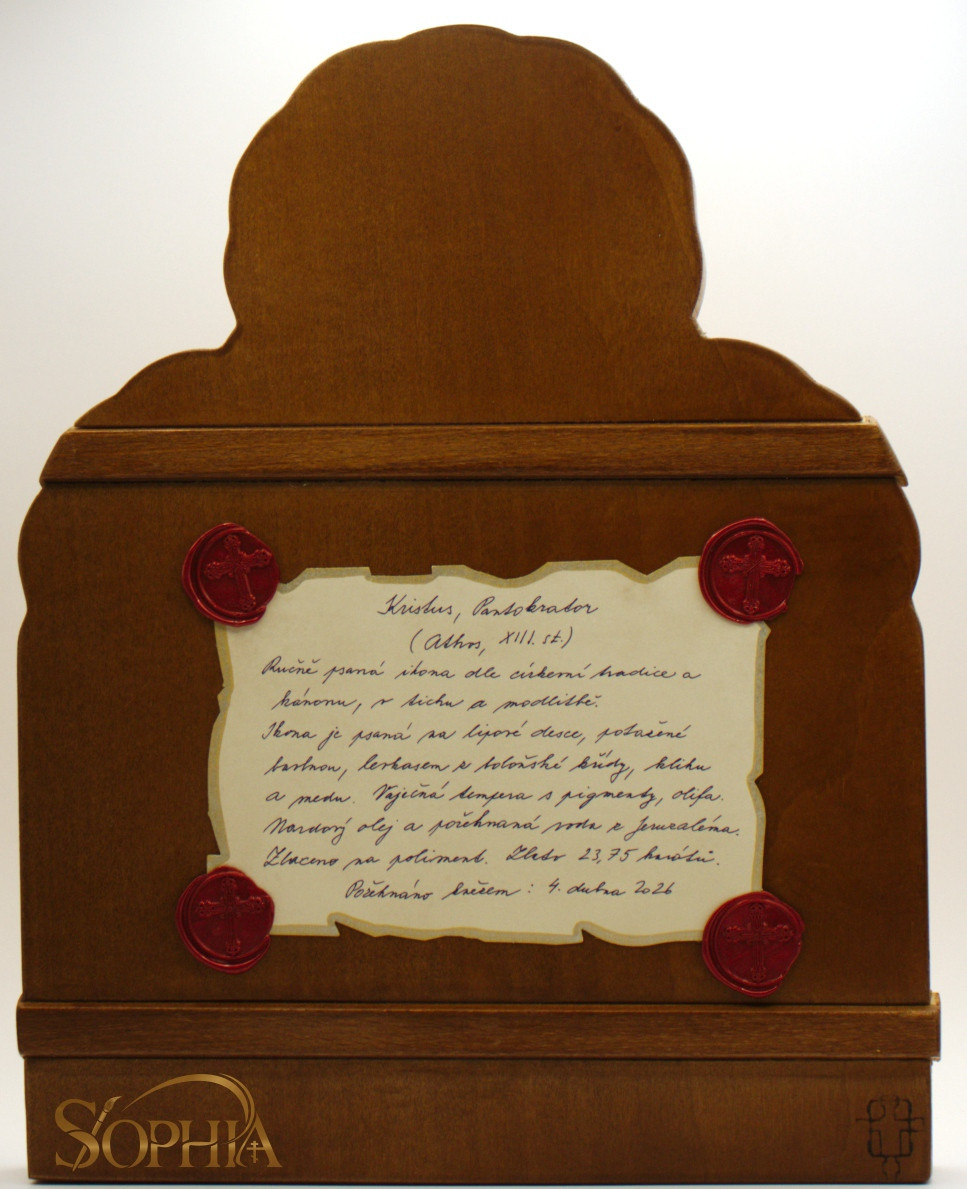 Kristus, Pantokrator
(Athos, XIII. st.)
Ručně psaná ikona dle církevní tradice a
kánonu, v tichu a modlitbě.
Ikona je psaná na lipové desce, potažené
bavlnou, levkasem z boloňské křídy, klihu
a medu. Vaječná tempera s pigmenty, olifa.
Nardový olej a požehnaná voda z Jeruzaléma.
Zlaceno na poliment. Zlato 23,75 karátů.
Požehnáno knězem : 4. dubna 2026
SOPHIA